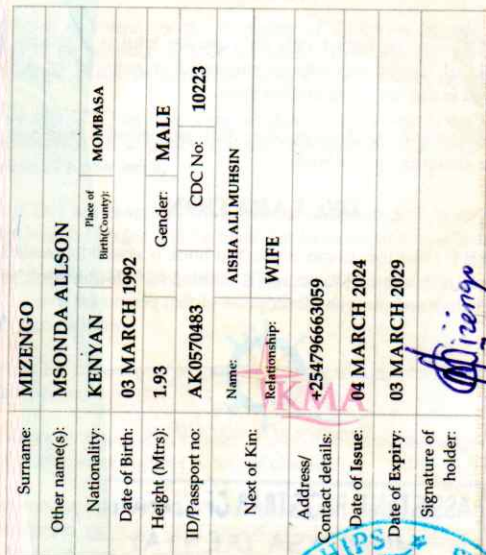 Surname: MIZENGO
Other name(s): MSONDA ALLSON
Nationality: KENYAN Place of Birth(County): MOMBASA
Date of Birth: 03 MARCH 1992
Height (Mtrs): 1.93 Gender: MALE
ID/Passport no: AK0570483 CDC No: 10223
Next of Kin: Name: AISHA ALI MUHSIN
Relationship: WIFE
Address/
Contact details: +254796663059
Date of Issue: 04 MARCH 2024
Date of Expiry: 03 MARCH 2029
Signature of
holder: Mizengo
KMA
SHIPS